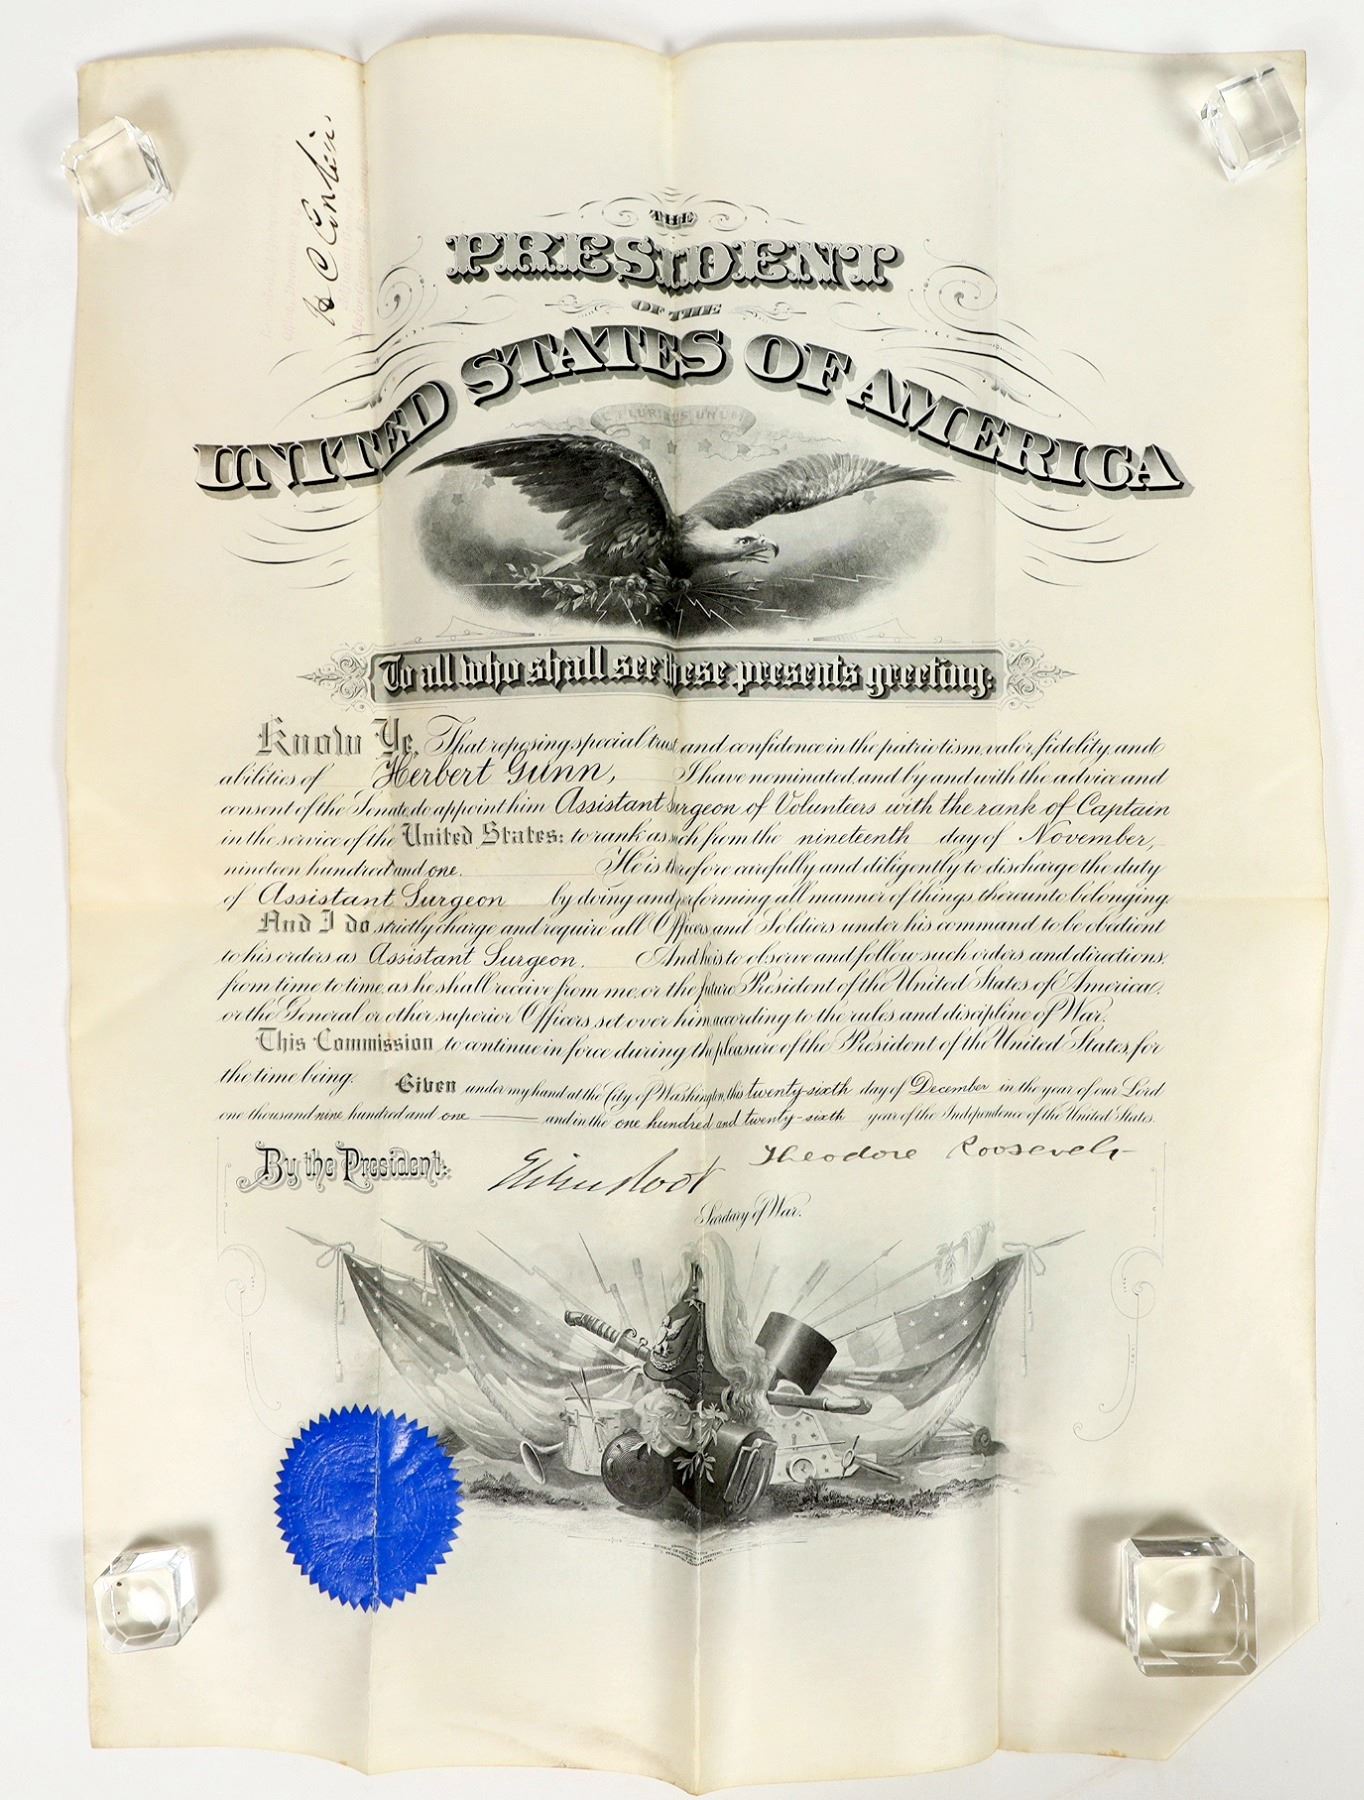 H C Corbin
THE
PRESIDENT
OF THE
UNITED STATES OF AMERICA
E PLURIBUS UNUM
To all who shall see these presents greeting:
Know Ye, That reposing special trust and confidence in the patriotism, valor, fidelity, and
abilities of Herbert Gunn, I have nominated, and by and with the advice and
consent of the Senate, do appoint him Assistant Surgeon of Volunteers with the rank of Captain
in the service of the United States: to rank as such from the nineteenth day of November,
nineteen hundred and one. He is therefore carefully and diligently to discharge the duty
of Assistant Surgeon by doing and performing all manner of things thereunto belonging.
And I do strictly charge and require all Officers and Soldiers under his command to be obedient
to his orders as Assistant Surgeon. And he is to observe and follow such orders and directions,
from time to time, as he shall receive from me, or the future President of the United States of America,
or the General or other superior Officers set over him, according to the rules and discipline of War.
This Commission to continue in force during the pleasure of the President of the United States, for
the time being. Given under my hand at the City of Washington, this twenty-sixth day of December in the year of our Lord
one thousand nine hundred and one and in the one hundred and twenty-sixth year of the Independence of the United States.
By the President: Theodore Roosevelt
Elihu Root
Secretary of War.